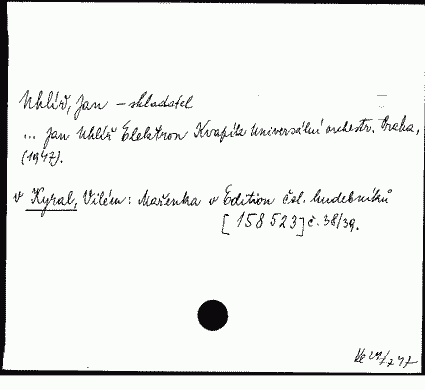 Uklíř, Jan – skladatel
... Jan Uklíř Elektron Kvapík Universální orchestr. Praha,
(1947).
v Kyral, Vilém: Mařenka v Edition čsl. hudebníků
[158 523] č. 38/39.